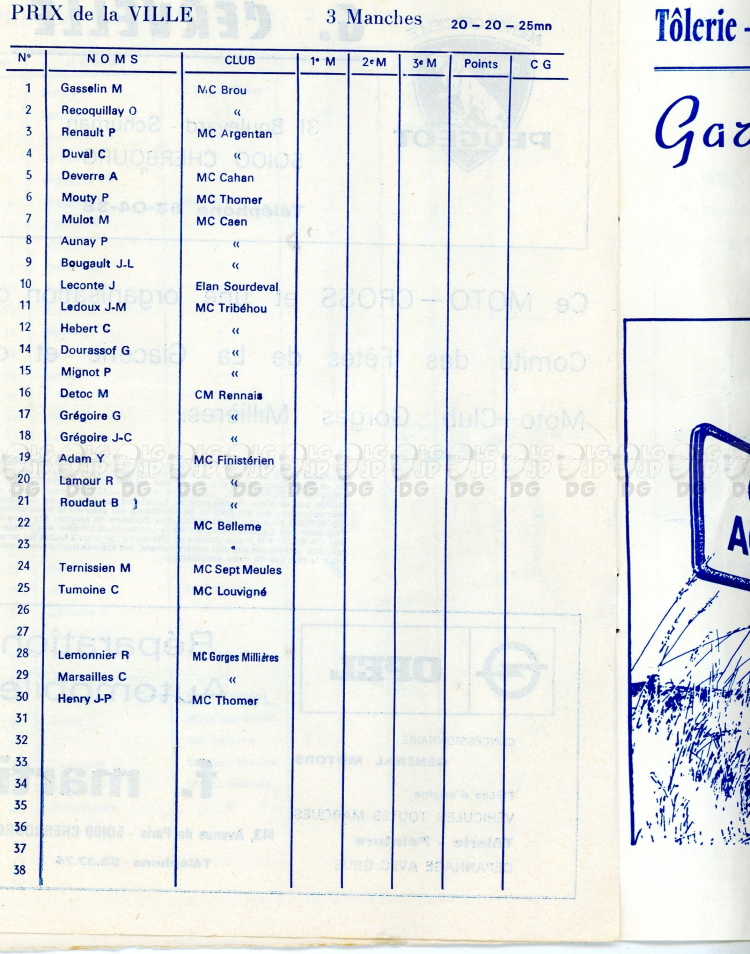 PRIX de la VILLE 3 Manches 20 - 20 - 25mn
N° NOMS CLUB 1e M 2e M 3e M Points C G
1 Gasselin M MC Brou
2 Recoquillay O «
3 Renault P MC Argentan
4 Duval C «
5 Deverre A MC Cahan
6 Mouty P MC Thomer
7 Mulot M MC Caen
8 Aunay P «
9 Bougault J-L «
10 Leconte J Elan Sourdeval
11 Ledoux J-M MC Tribéhou
12 Hebert C «
14 Dourassof G «
15 Mignot P «
16 Detoc M CM Rennais
17 Grégoire G «
18 Grégoire J-C «
19 Adam Y MC Finistérien
20 Lamour R «
21 Roudaut B «
22 MC Belleme
23 «
24 Ternissien M MC Sept Meules
25 Tumoine C MC Louvigné
26
27
28 Lemonnier R MC Gorges Millières
29 Marsailles C «
30 Henry J-P MC Thomer
31
32
33
34
35
36
37
38
Tôlerie -